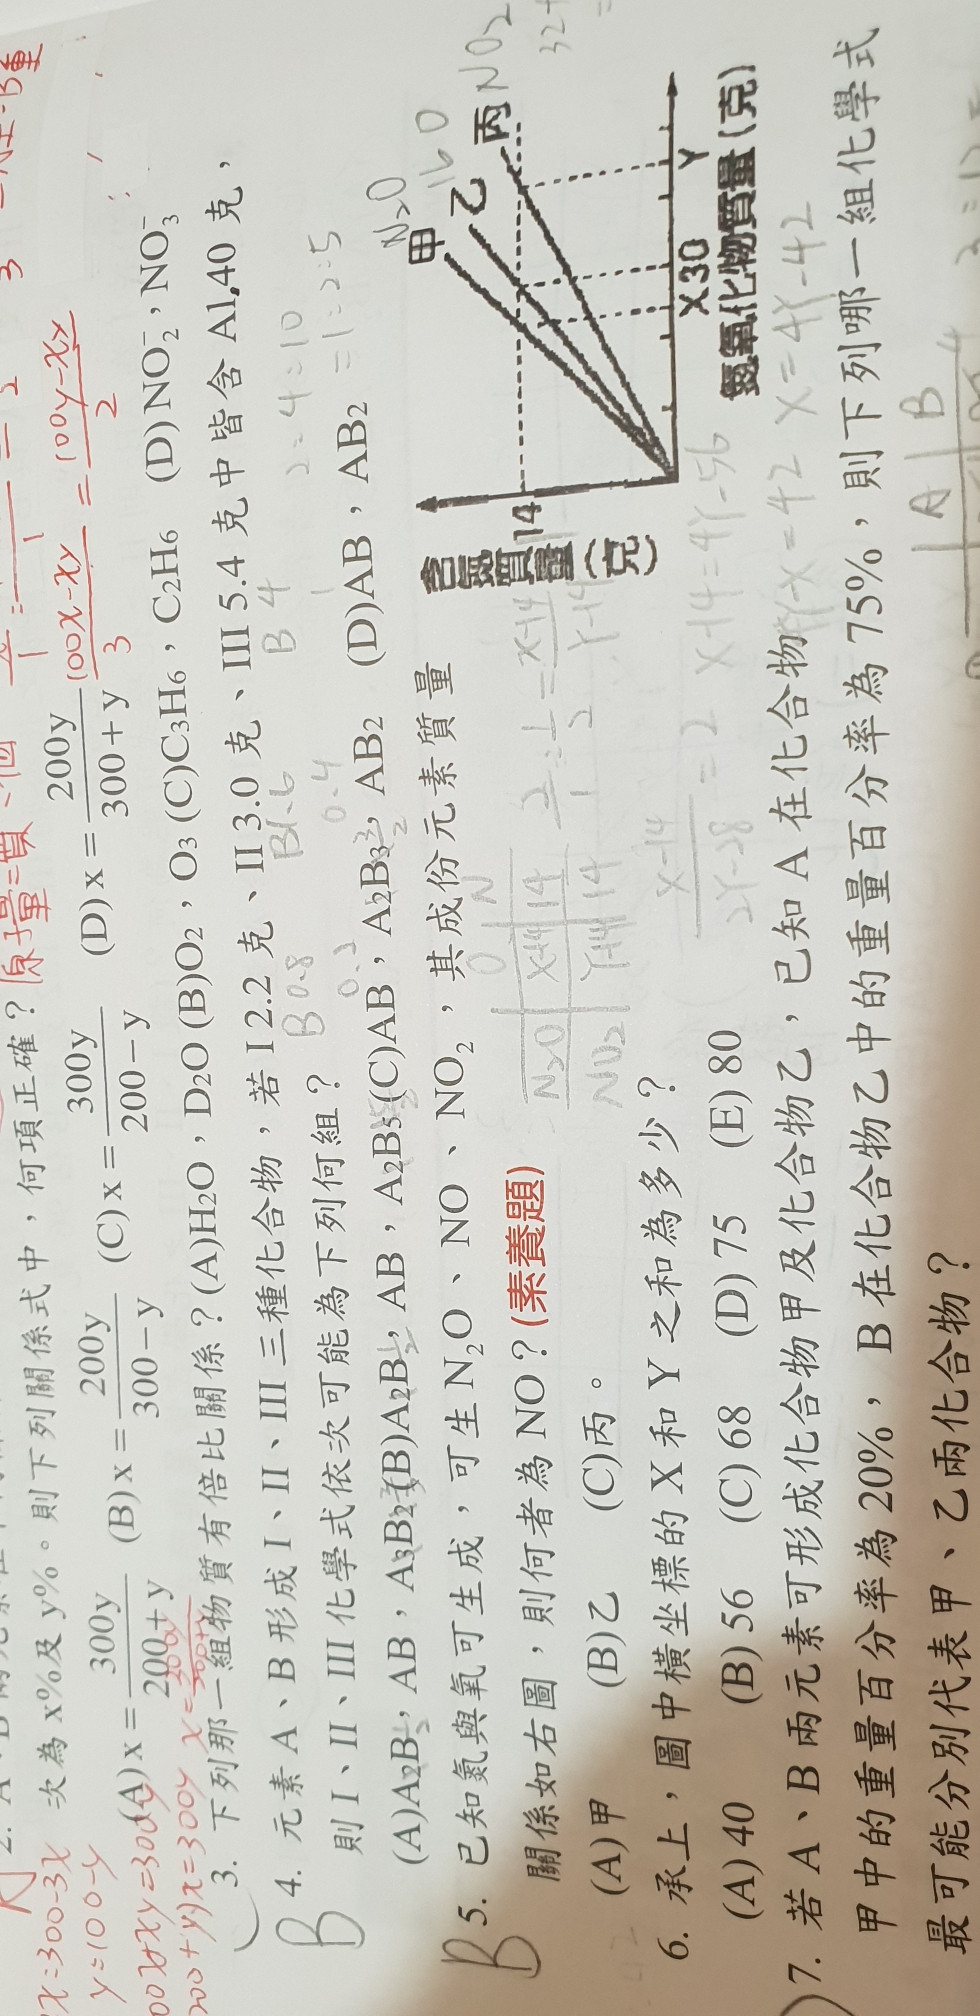 次為 x%及 y%。則下列關係式中，何項正確？ 原子量=質
(A) x = 300y / 200 + y (B) x = 200y / 300 − y (C) x = 300y / 200 − y (D) x = 200y / 300 + y
x=300-3x
y=100-y
200+y)x=300y
100x-xy / 3 = 100y-xy / 2
3. 下列那一組物質有倍比關係？(A)H2O，D2O (B)O2，O3 (C)C3H6，C2H6 (D) NO2−，NO3−
4. 元素 A、B 形成 I、II、III 三種化合物，若 I 2.2 克、II 3.0 克、III 5.4 克中皆含 A1.40 克，
B
B 0.8
B1.6
B 4
2=4=10
則 I、II、III 化學式依次可能為下列何組？
0.2
0.4
1
=1=2=5
(A)A2B，AB，A3B2 (B)A2B，AB，A2B5 (C)AB，A2B3，AB2 (D)AB，AB2
5. 已知氮與氧可生成，可生 N2O、NO、NO2，其成份元素質量
B
關係如右圖，則何者為 NO？(素養題)
(A)甲 (B)乙 (C)丙。
O N
N2O X-14 14
NO2 Y-14 14
X-14 / 2Y-28 = 2
X-14=4Y-56
4Y-X=42 X=4Y-42
含氮質量(克)
14
甲 N2O
乙
丙 NO2
X 30 Y
氮氧化物質量(克)
6. 承上，圖中橫坐標的 X 和 Y 之和為多少？
(A) 40 (B) 56 (C) 68 (D) 75 (E) 80
7. 若 A、B 兩元素可形成化合物甲及化合物乙，已知 A 在化合物
甲中的重量百分率為 20%，B 在化合物乙中的重量百分率為 75%，則下列哪一組化學式
最可能分別代表甲、乙兩化合物？
A B